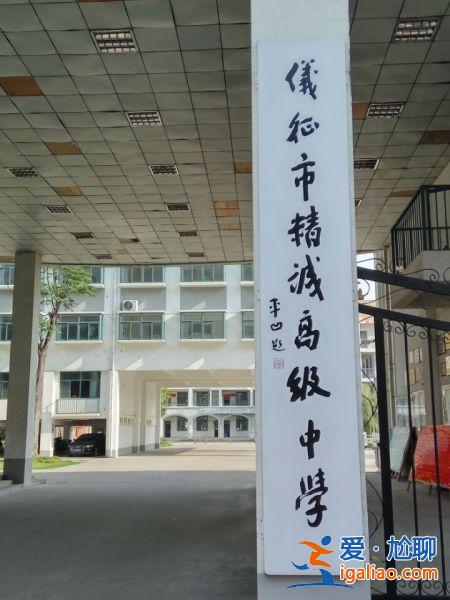 儀征市精誠高级中學
平凹题
爱·尬聊
igaliao.com